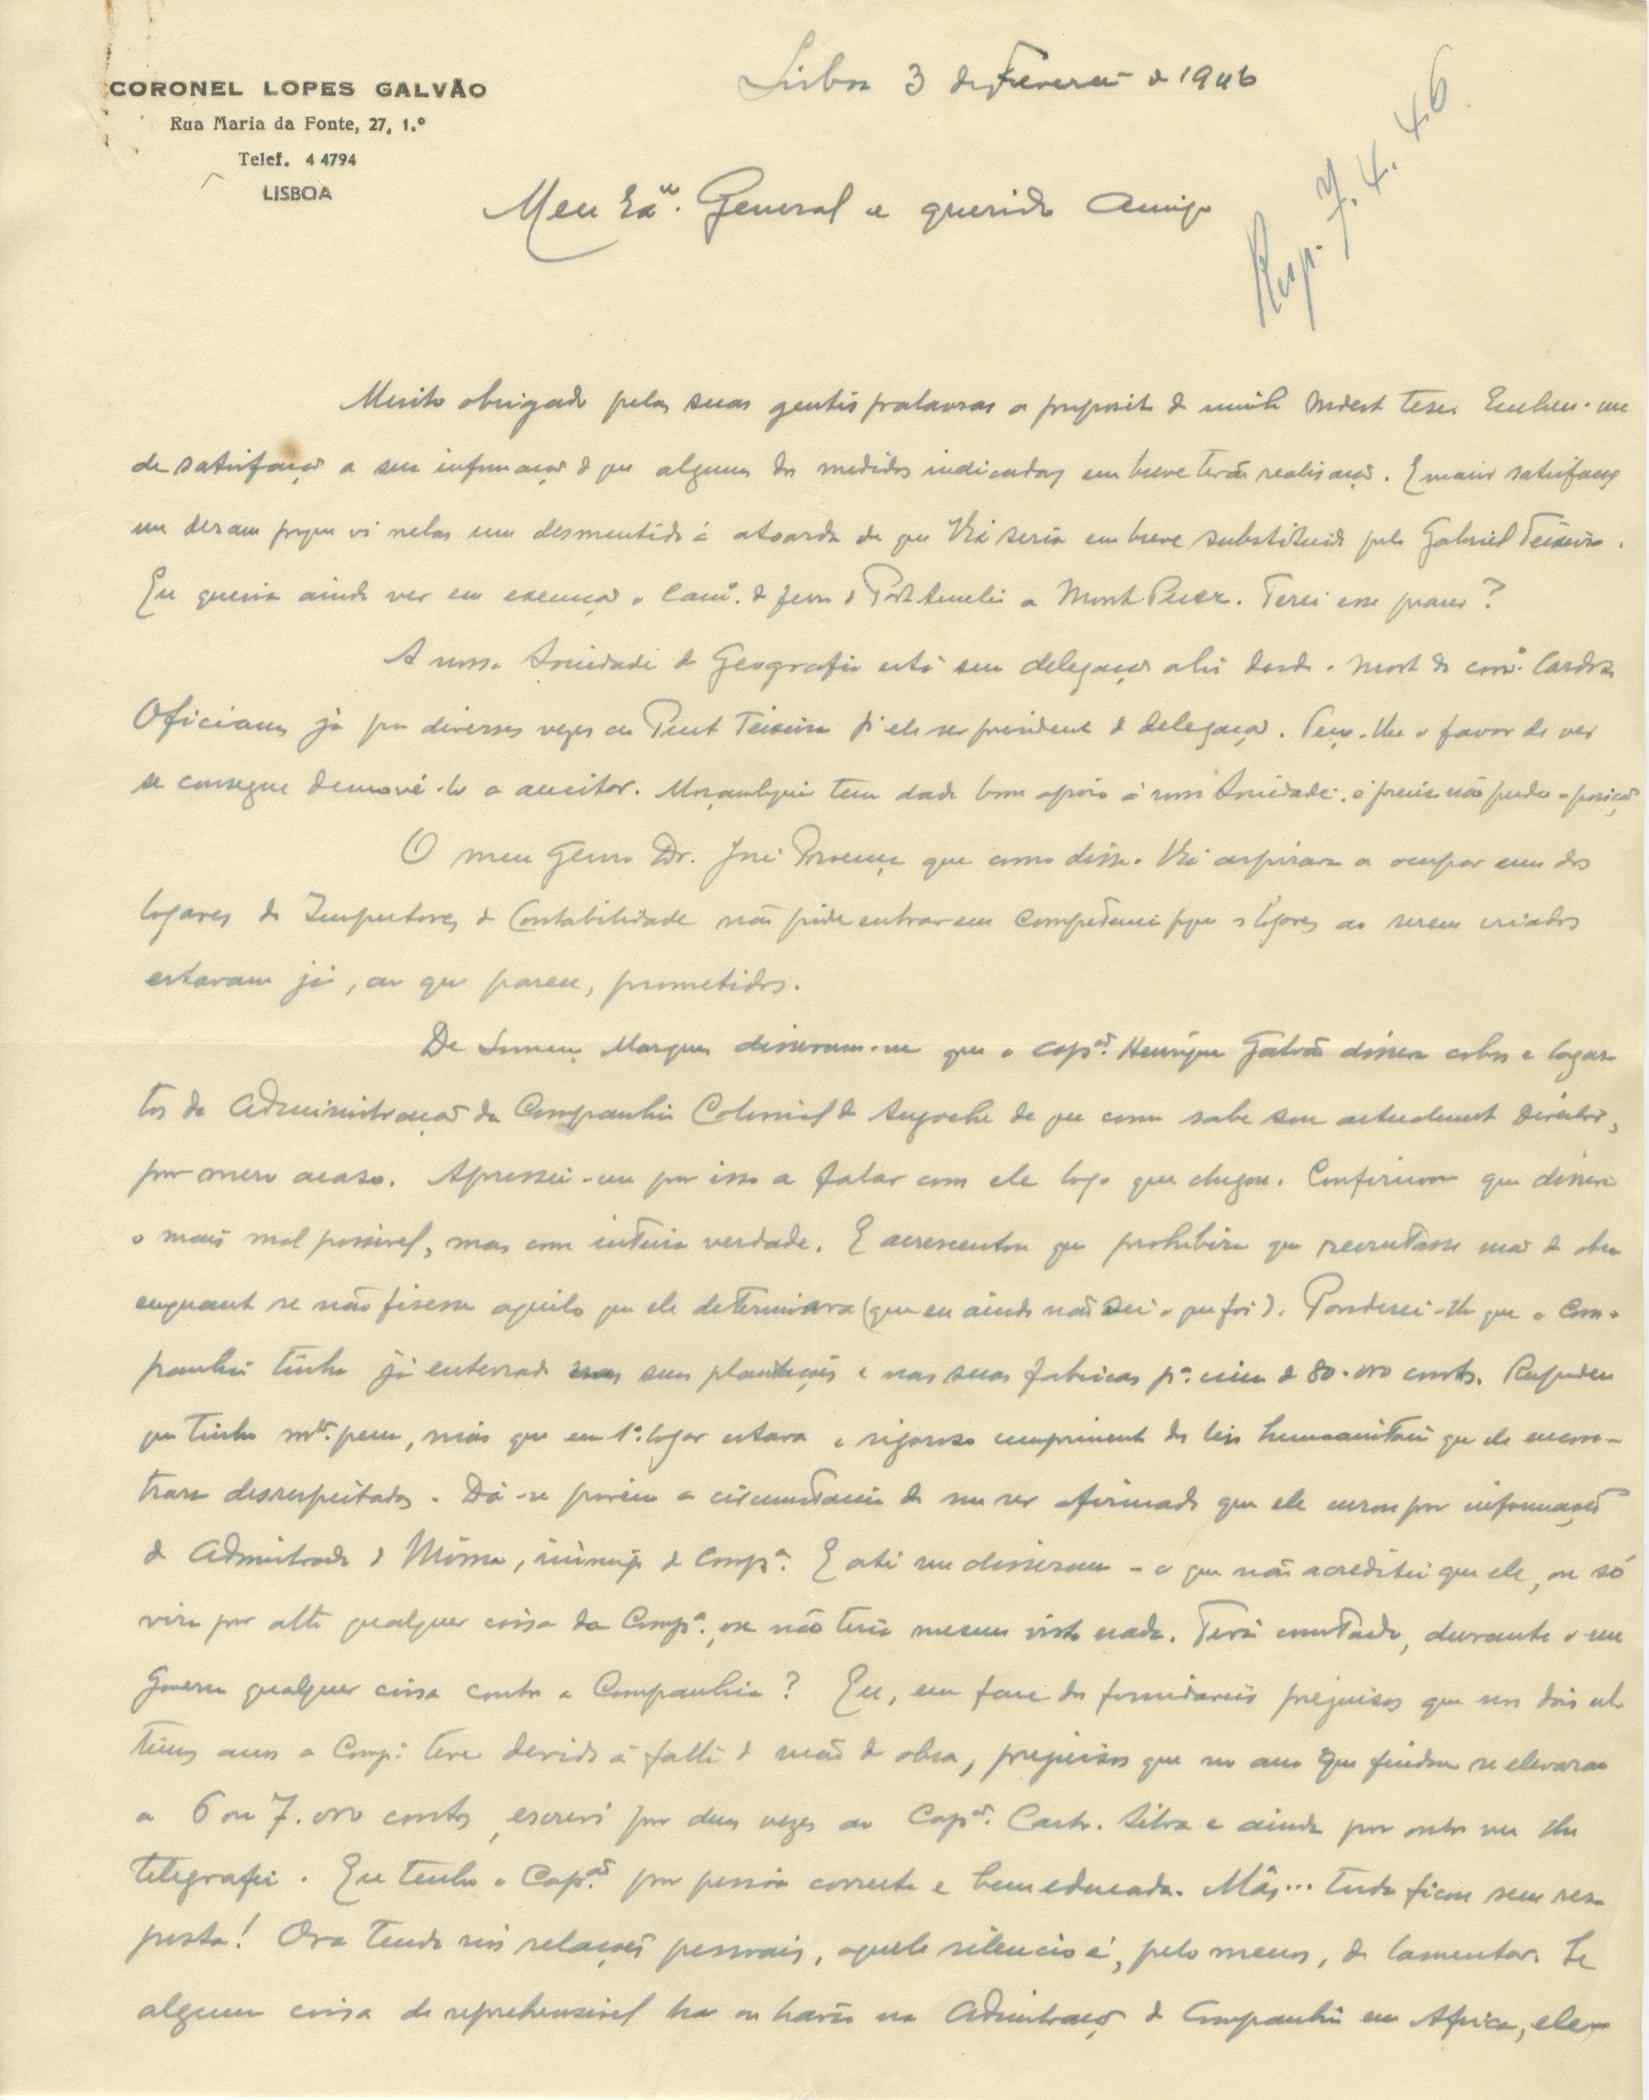 CORONEL LOPES GALVÃO
Rua Maria da Fonte, 27, 1.º
Telef. 4 4794
LISBOA
Lisboa 3 de Fevereiro de 1946
Resp. 7.4.46
Meu Exmo. General e querido Amigo
Muito obrigado pelas suas gentis palavras a proposito da minha modesta tese. Encheu-me
de satisfação a sua informação de que algumas das medidas indicadas em breve terão realisação. E maior satisfação
me deram porque vi nelas um desmentido á atoarda de que V. Exa seria em breve substituido pelo Gabriel Teixeira.
Eu queria ainda ver em execução o Camo. de ferro de Porto Amelia a Mont Puez. Terei esse prazer?
A nossa Sociedade de Geografia está sem delegação ahi desde a morte do comte. Cardoso
Oficiamos já por diversas vezes ao Pinto Teixeira pa ele ser presidente da delegação. Peço-lhe o favor de ver
se consegue demovê-lo a aceitar. Moçambique tem dado bom apoio á nossa Sociedade: é preciso não perder a posição
O meu genro Dr. José Proença que como disse a V. Exa aspirava a ocupar um dos
logares de Inspectores de Contabilidade não pôde entrar em competencia porque os logares ao serem criados
estavam já, ao que parece, prometidos.
De Lourenço Marques disseram-me que o capão. Henrique Galvão dissera cobras e lagar-
tos da Administração da Companhia Colonial de Angoche de que como sabe sou actualmente Director,
por mero acaso. Apressei-me por isso a falar com ele logo que chegou. Confirmou que dissera
o mais mal possivel, mas com inteira verdade. E acrescentou que prohibira que recrutasse mão de obra
enquanto se não fizesse aquilo que ele determinara (que eu ainda não sei o que foi). Ponderei-lhe que a Com-
panhia tinha já enterrado nas suas plantações e nas suas fabricas pa. cima de 80.000 contos. Respondeu
que tinha mta. pena, mas que em 1º. logar estava o rigoroso cumprimento das leis humanitarias que ele encon-
trara desrespeitadas. Dá-se porém a circunstancia de me ser afirmado que ele curou por informações
do Administrador de Môma, inimigo da Compa. E até me disseram - o que não acreditei que ele, ou só
vira por alto qualquer coisa da Compa., ou não teria mesmo visto nada. Terá constado, durante o seu
Governo qualquer coisa contra a Companhia? Eu, em face dos formidaveis prejuisos que nos dois ul-
timos anos a Compa. teve devido á falta de mão de obra, prejuisos que no ano que findou se elevaram
a 6 ou 7.000 contos, escrevi por duas vezes ao Capão. Castro Silva e ainda por outra vez lhe
telegrafei. Eu tenho o Capão. por pessoa correcta e bem educada. Mâs... tudo ficou sem res-
posta! Ora tendo nós relações pessoais, aquele silencio é, pelo menos, de lamentar. Se
alguma coisa de reprehensivel ha ou havia na Administração da Companhia em Africa, ele